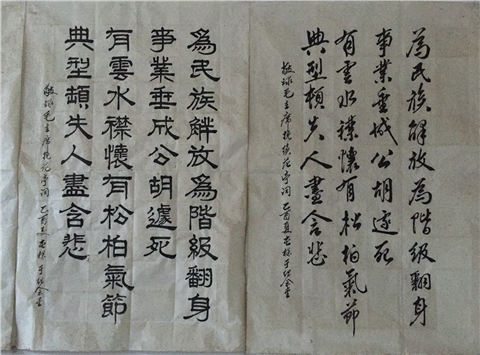 為民族解放為階級翻身
事業垂成公胡遽死
有雲水襟懷有松柏氣節
典型頓失人盡含悲
敬录毛主席挽续范亭词 乙酉夏
為民族觧放為階級翻身
事業垂成公胡遽死
有雲水襟懷有松柏氣節
典型頓失人盡含悲
敬录毛主席挽范亭词 乙酉夏